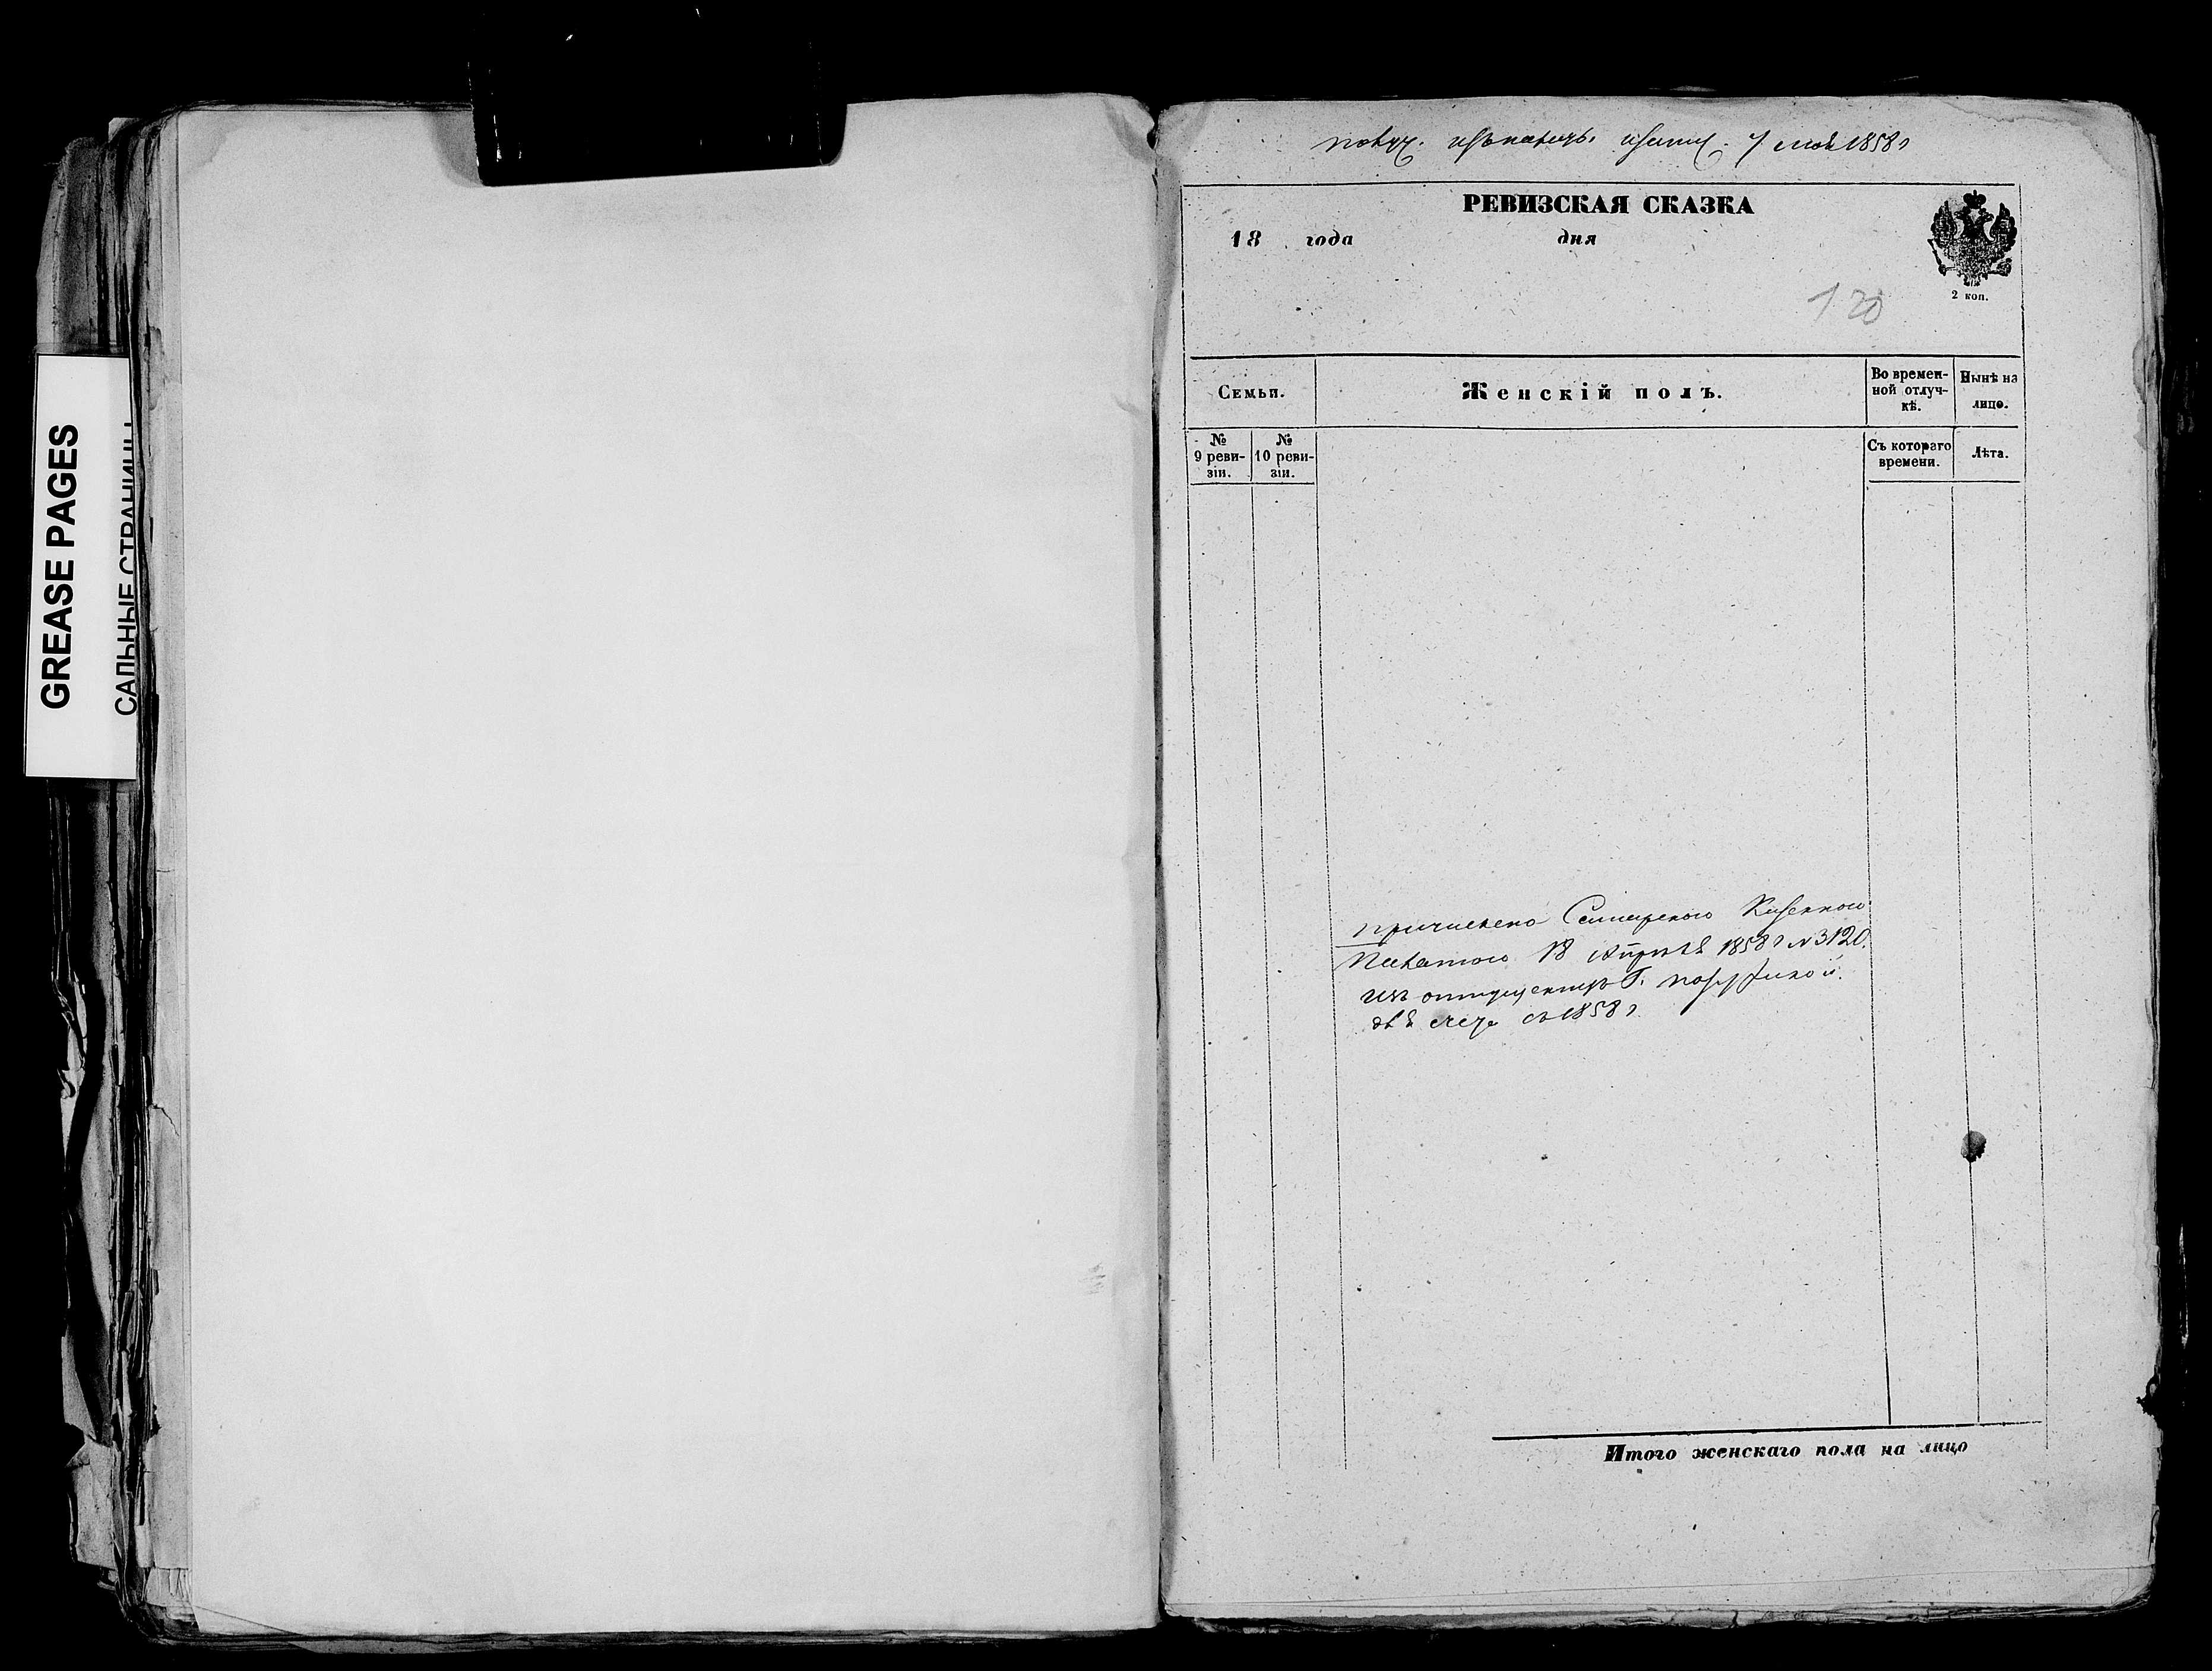 GREASE PAGES
САЛЬНЫЕ СТРАНИЦЫ
7 мая 1858 г
РЕВИЗСКАЯ СКАЗКА
18 года дня
2 коп.
120
Семьи.
Женскій полъ.
Во времен-
ной отлуч-
кѣ.
Нынѣ на
лицо.
№
9 реви-
зіи.
№
10 реви-
зіи.
Съ котораго
времени.
Лѣта.
причислено Казенною
Палатою 18 Апрѣля 1858 г № 3120.
изъ
съ 1858 г.
Итого женскаго пола на лицо